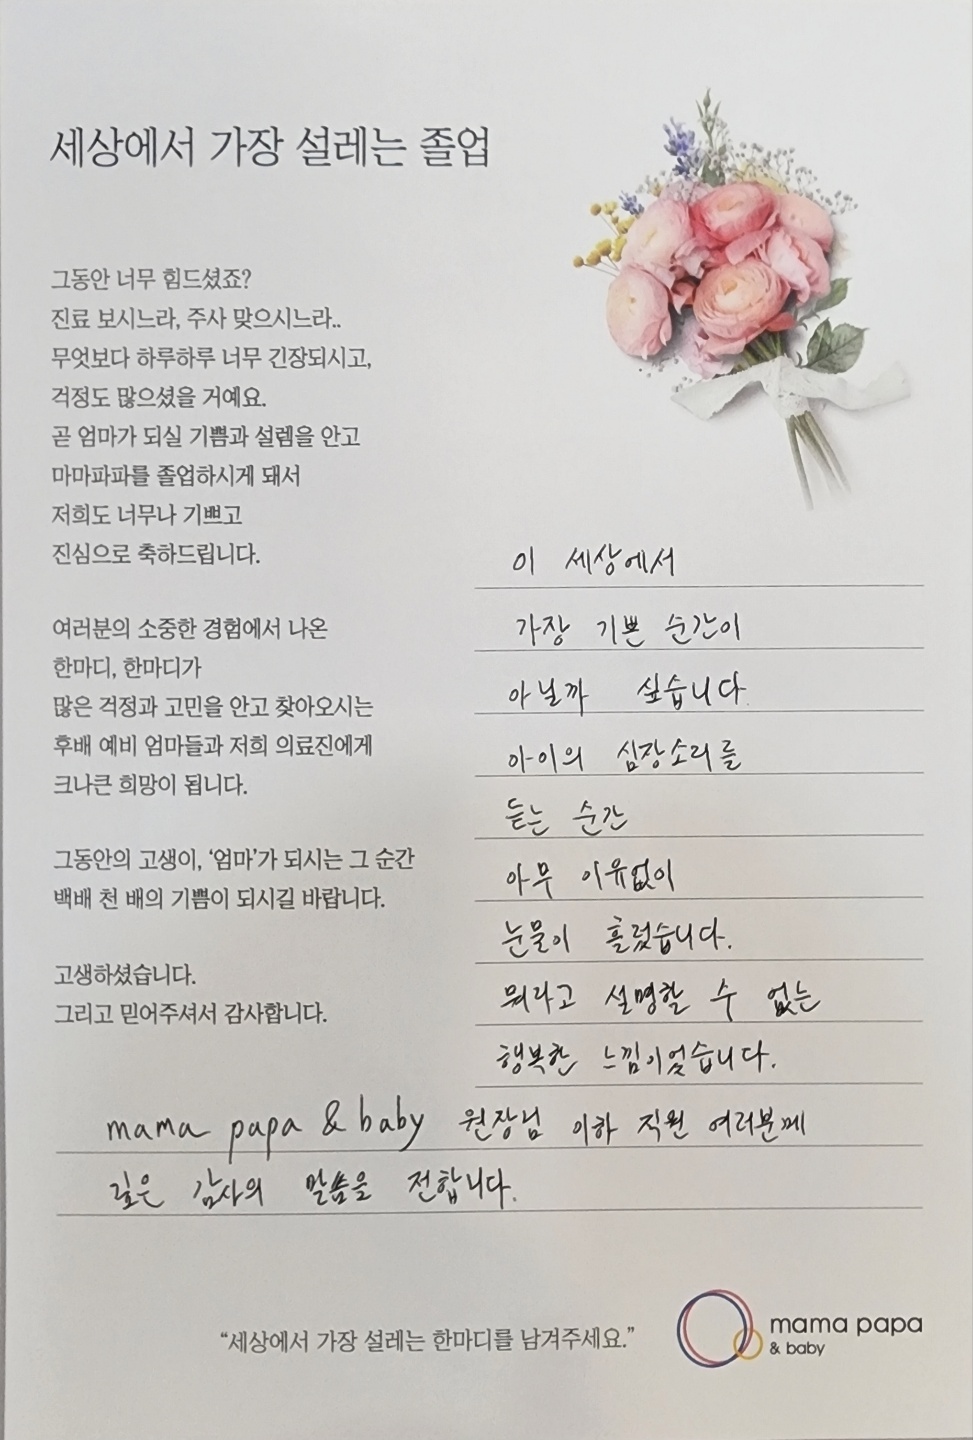 세상에서 가장 설레는 졸업
그동안 너무 힘드셨죠?
진료 보시느라, 주사 맞으시느라..
무엇보다 하루하루 너무 긴장되시고,
걱정도 많으셨을 거예요.
곧 엄마가 되실 기쁨과 설렘을 안고
마마파파를 졸업하시게 돼서
저희도 너무나 기쁘고
진심으로 축하드립니다.
여러분의 소중한 경험에서 나온
한마디, 한마디가
많은 걱정과 고민을 안고 찾아오시는
후배 예비 엄마들과 저희 의료진에게
크나큰 희망이 됩니다.
그동안의 고생이, ‘엄마’가 되시는 그 순간
백배 천 배의 기쁨이 되시길 바랍니다.
고생하셨습니다.
그리고 믿어주셔서 감사합니다.
이 세상에서
가장 기쁜 순간이
아닐까 싶습니다.
아이의 심장소리를
듣는 순간
아무 이유없이
눈물이 흘렀습니다.
뭐라고 설명할 수 없는
행복한 느낌이었습니다.
mama papa & baby 원장님 이하 직원 여러분께
깊은 감사의 말씀을 전합니다.
“세상에서 가장 설레는 한마디를 남겨주세요.”
mama papa
& baby